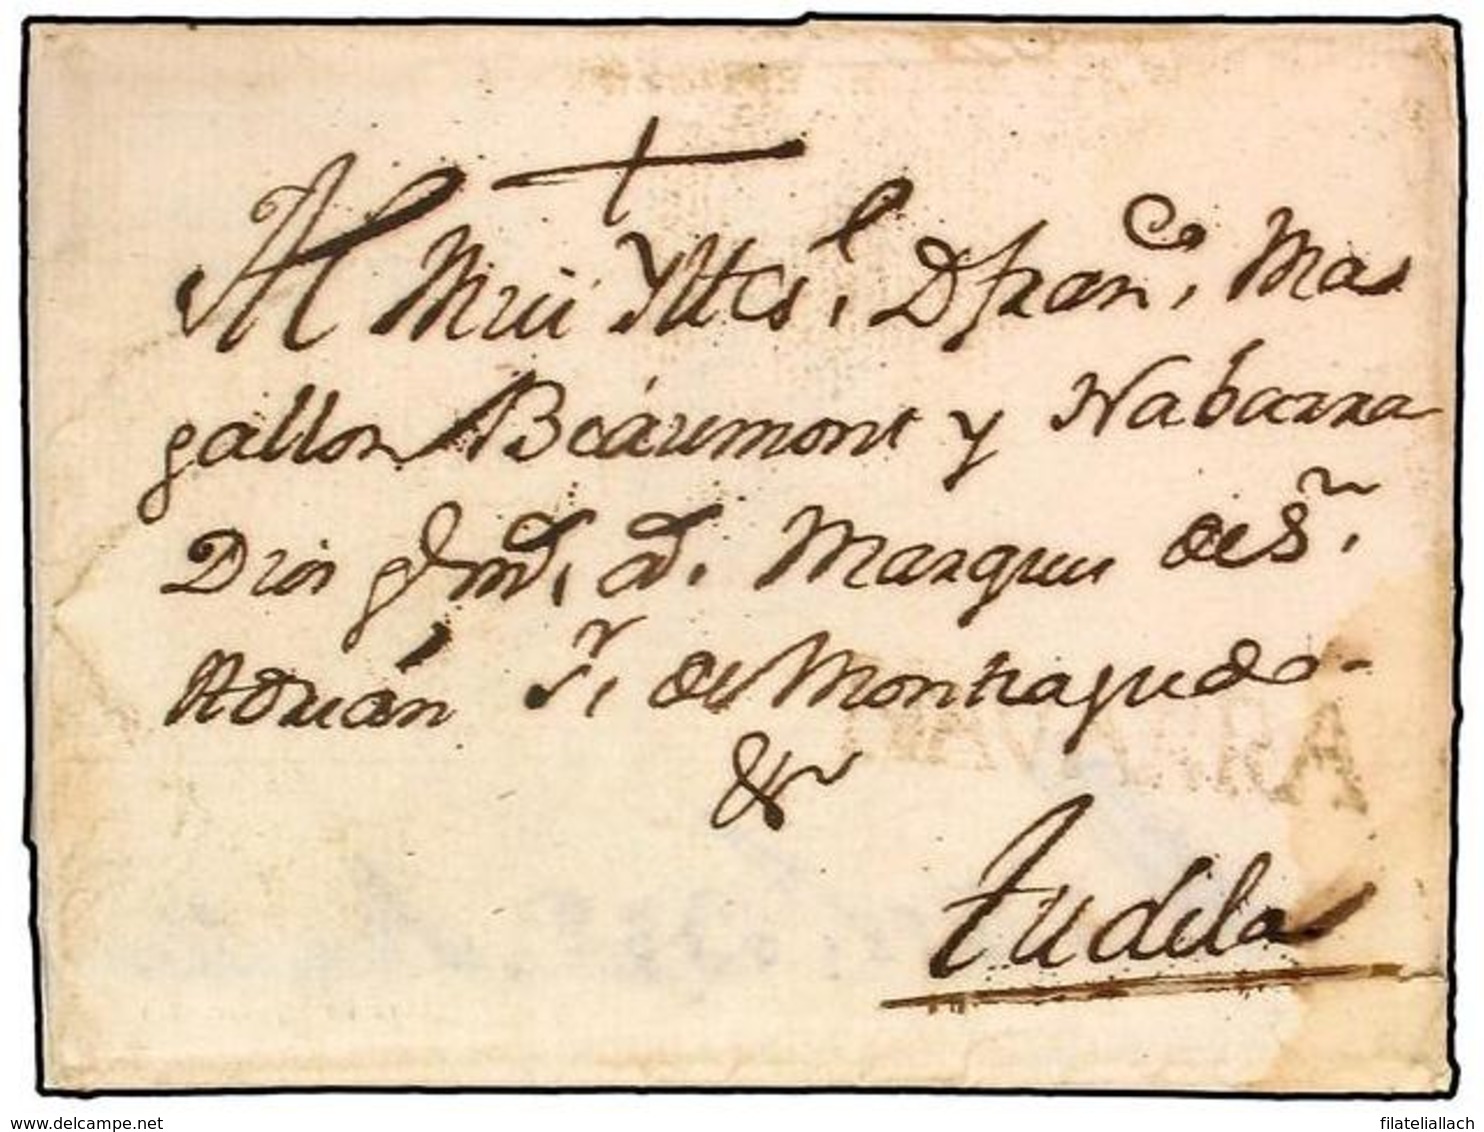 Al Mui Ylltes.l D fran.co Ma
gallon Beáumont y Nabarra
Dios gũe m.d a.s Marques de S.n
Adrián S.r de Montagudo-
&r
Tudela
NAVARRA
www.delcampe.net
filateliallach